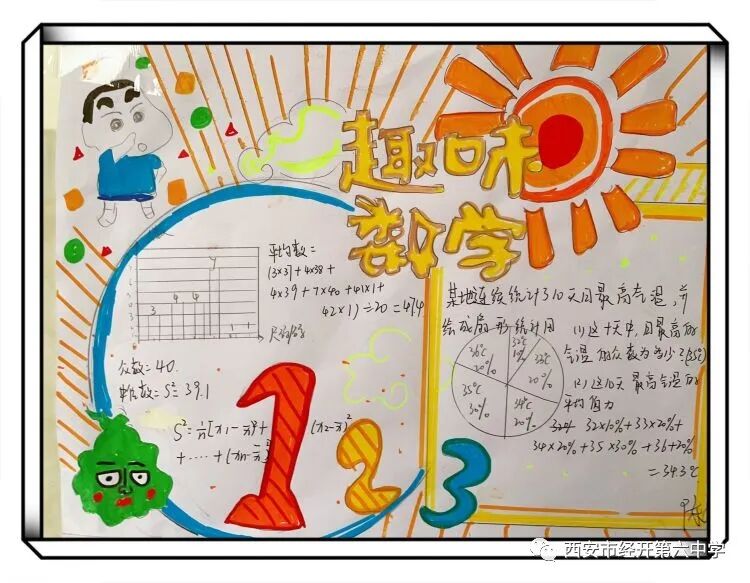 趣味
数学
平均数=
(3×37+4×38+
4×39+7×40+41×1+
42×1)÷20=
3
4
4
尺码/名
众数=40.
S²=39.1
S²=1/n[(x1-x̄)²+(x2-x̄)²
+……+(xn-x̄)²]
1
2
3
某地连续统计了10天日最高气温,并
绘成扇形统计图
(1)这十天中,日最高的
气温的众数为多少?(35℃)
(2)这10天最高气温的
平均值为
32×10%+33×20%+
34×20%+35×30%+36×20%
=34.3℃
36℃
20%
32℃
33℃
20%
35℃
30%
34℃
20%
西安市经开第六中学